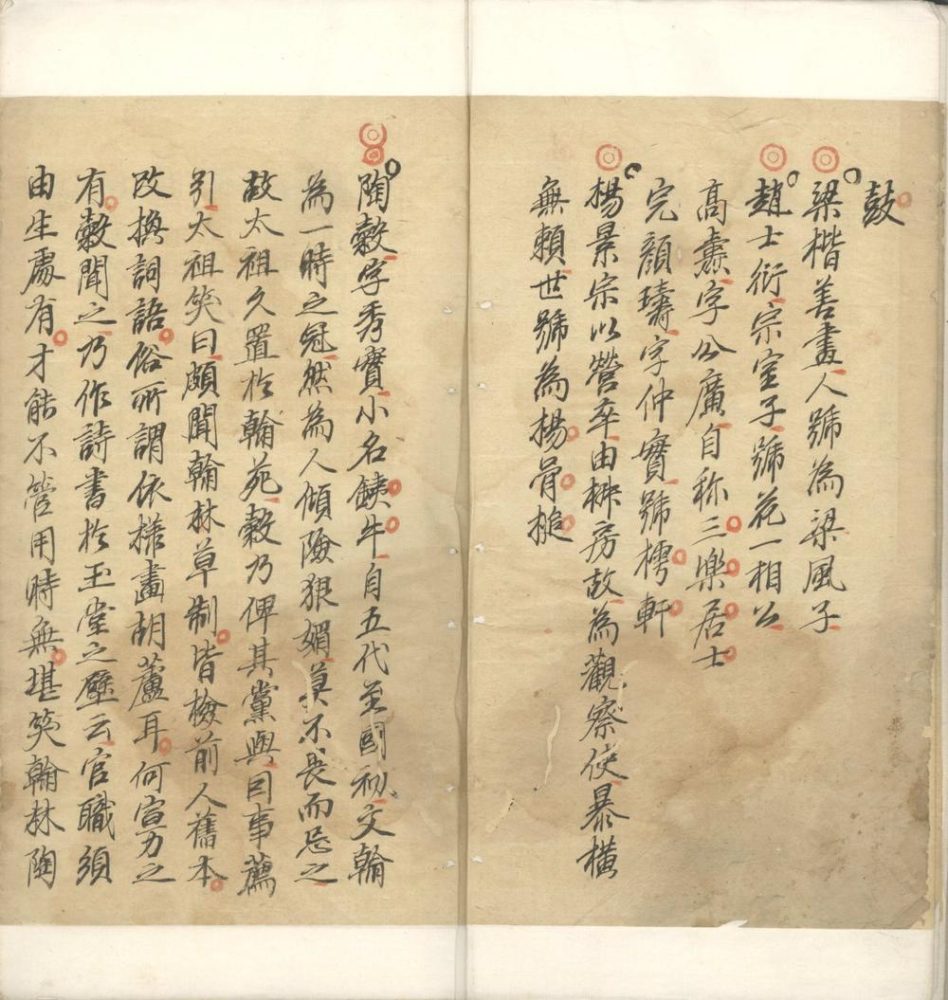 鼓
梁楷善畫人號為梁風子
趙士衍宗室子號花一相公
高燾字公廣自称三樂居士
完顏璹字仲實號樗軒
楊景宗以營卒由椒房故為觀察使暴橫
無賴世號為楊骨槌
陶糓字秀實小名鐵牛自五代至國初文翰
為一時之冠然為人傾險狠媚莫不畏而忌之
故太祖久置於翰苑糓乃俾其黨與因事薦
引太祖笑曰頗聞翰林草制皆檢前人舊本
改換詞語俗所謂依様畫胡蘆耳何宣力之
有糓聞之乃作詩書於玉堂之壁云官職須
由生處有才能不管用時無堪笑翰林陶